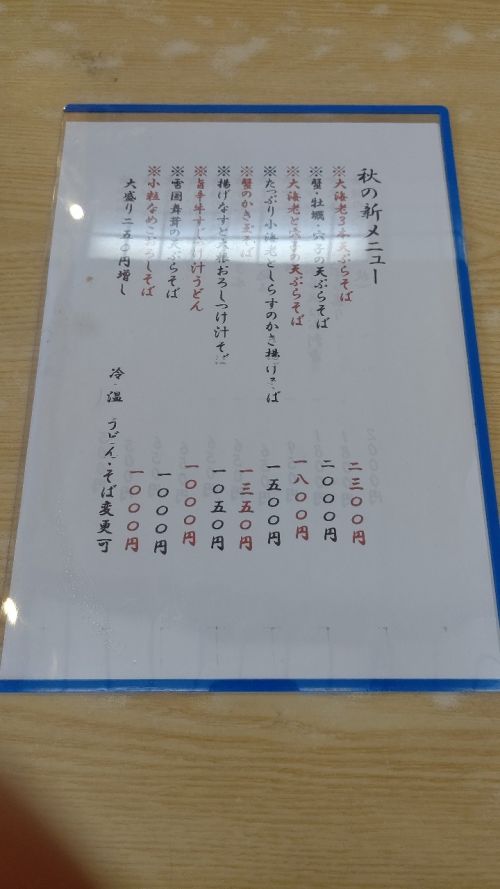 秋の新メニュー
※大海老3本天ぷらそば 二三〇〇円
※蟹・牡蠣・穴子の天ぷらそば 二〇〇〇円
※大海老と穴子の天ぷらそば 一八〇〇円
※たっぷり小海老としらすのかき揚げそば 一五〇〇円
※蟹のかき玉そば 一三五〇円
※揚げなすと おろしつけ汁そば 一〇五〇円
※旨辛牛すじつけ汁うどん 一〇〇〇円
※雪国舞茸の天ぷらそば 一〇〇〇円
※小粒なめこおろしそば 一〇〇〇円
大盛り二五〇円増し
冷・温 うどん・そば変更可